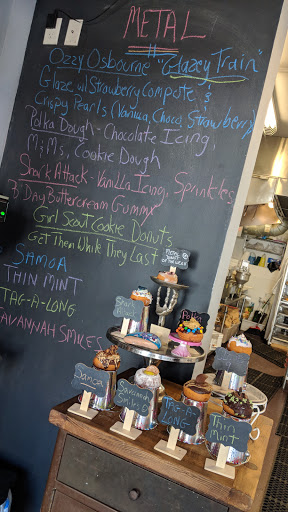 METAL
Ozzy Osbourne "Glazey Train"
Glaze w/ Strawberry Compote &
Crispy Pearls (Vanilla, Choco, Strawberry)
Polka Dough - Chocolate Icing,
M&Ms, Cookie Dough
Shark Attack - Vanilla Icing, Sprinkles
3 Day Buttercream Gummy
Girl Scout Cookie Donuts
Get Them While They Last
SAMOA
THIN MINT
TAG-A-LONG
SAVANNAH SMILES
Shark
Attack
Polka
Samoa
Savannah
Smiles
TAG-A-
LONG
Thin
Mint